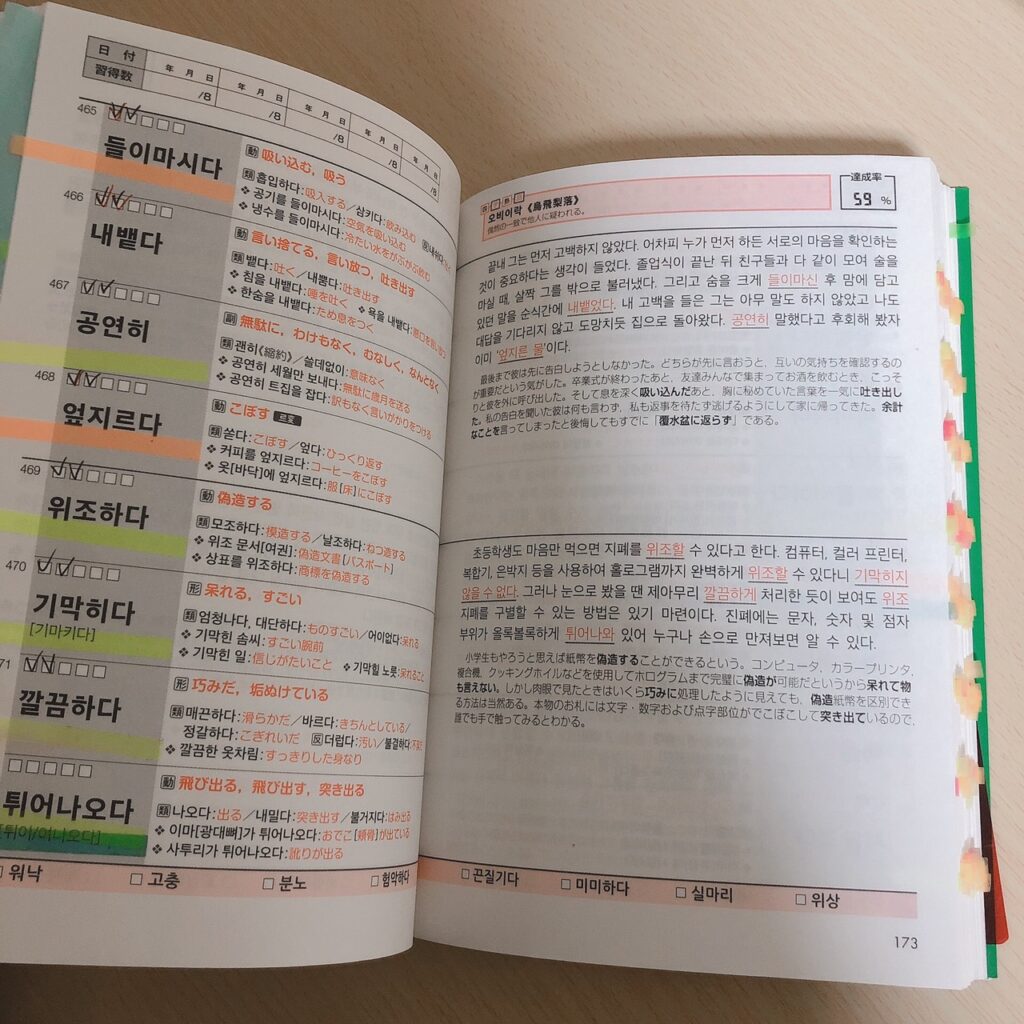 日 付
年 月 日
年 月 日
年 月 日
年 月 日
年 月 日
習得数
/8
/8
/8
/8
/8
465
들이마시다
動 吸い込む, 吸う
類 흡입하다: 吸入する／삼키다: 飲み込む
❖ 공기를 들이마시다: 空気を吸い込む
❖ 냉수를 들이마시다: 冷たい水をがぶがぶ飲む
466
내뱉다
動 言い捨てる, 言い放つ, 吐き出す
類 뱉다: 吐く／내뿜다: 吐き出す
❖ 침을 내뱉다: 唾を吐く ❖ 욕을 내뱉다:
❖ 한숨을 내뱉다: ため息をつく
467
공연히
副 無駄に, わけもなく, むなしく, なんとなく
類 괜히《縮約》／쓸데없이: 意味なく
❖ 공연히 세월만 보내다: 無駄に歳月を送る
❖ 공연히 트집을 잡다: 訳もなく言いがかりをつける
468
엎지르다
動 こぼす 르変
類 쏟다: こぼす／엎다: ひっくり返す
❖ 커피를 엎지르다: コーヒーをこぼす
❖ 옷[바닥]에 엎지르다: 服[床]にこぼす
469
위조하다
動 偽造する
類 모조하다: 模造する／날조하다: ねつ造する
❖ 위조 문서[여권]: 偽造文書[パスポート]
❖ 상표를 위조하다: 商標を偽造する
470
기막히다
[기마키다]
形 呆れる, すごい
類 엄청나다, 대단하다: ものすごい／어이없다: 呆れる
❖ 기막힌 솜씨: すごい腕前
❖ 기막힌 일: 信じがたいこと ❖ 기막힐 노릇: 呆れること
71
깔끔하다
形 巧みだ, 垢ぬけている
類 매끈하다: 滑らかだ／바르다: きちんとしている／
정갈하다: こぎれいだ 反 더럽다: 汚い／불결하다:
❖ 깔끔한 옷차림: すっきりした身なり
튀어나오다
[튀이/여나오다]
動 飛び出る, 飛び出す, 突き出る
類 나오다: 出る／내밀다: 突き出す／불거지다: はみ出る
❖ 이마[광대뼈]가 튀어나오다: おでこ[頬骨]が出ている
❖ 사투리가 튀어나오다: 訛りが出る
□ 워낙 □ 고충 □ 분노 □ 험악하다
오비이락《烏飛梨落》
偶然の一致で他人に疑われる。
達成率
59 %
끝내 그는 먼저 고백하지 않았다. 어차피 누가 먼저 하든 서로의 마음을 확인하는
것이 중요하다는 생각이 들었다. 졸업식이 끝난 뒤 친구들과 다 같이 모여 술을
마실 때, 살짝 그를 밖으로 불러냈다. 그리고 숨을 크게 들이마신 후 맘에 담고
있던 말을 순식간에 내뱉었다. 내 고백을 들은 그는 아무 말도 하지 않았고 나도
대답을 기다리지 않고 도망치듯 집으로 돌아왔다. 공연히 말했다고 후회해 봤자
이미 '엎지른 물'이다.
最後まで彼は先に告白しようとしなかった。どちらが先に言おうと、互いの気持ちを確認するの
が重要だという気がした。卒業式が終わったあと、友達みんなで集まってお酒を飲むとき、こっそ
りと彼を外に呼び出した。そして息を深く吸い込んだあと、胸に秘めていた言葉を一気に吐き出し
た。私の告白を聞いた彼は何も言わず、私も返事を待たず逃げるようにして家に帰ってきた。余計
なことを言ってしまったと後悔してもすでに「覆水盆に返らず」である。
초등학생도 마음만 먹으면 지폐를 위조할 수 있다고 한다. 컴퓨터, 컬러 프린터,
복합기, 은박지 등을 사용하여 홀로그램까지 완벽하게 위조할 수 있다니 기막히지
않을 수 없다. 그러나 눈으로 봤을 땐 제아무리 깔끔하게 처리한 듯이 보여도 위조
지폐를 구별할 수 있는 방법은 있기 마련이다. 진폐에는 문자, 숫자 및 점자
부위가 올록볼록하게 튀어나와 있어 누구나 손으로 만져보면 알 수 있다.
小学生もやろうと思えば紙幣を偽造することができるという。コンピュータ、カラープリンタ、
複合機、クッキングホイルなどを使用してホログラムまで完璧に偽造が可能だというから呆れて物
も言えない。しかし肉眼で見たときはいくら巧みに処理したように見えても、偽造紙幣を区別でき
る方法は当然ある。本物のお札には文字・数字および点字部位がでこぼこして突き出ているので、
誰でも手で触ってみるとわかる。
□ 끈질기다 □ 미미하다 □ 실마리 □ 위상
173